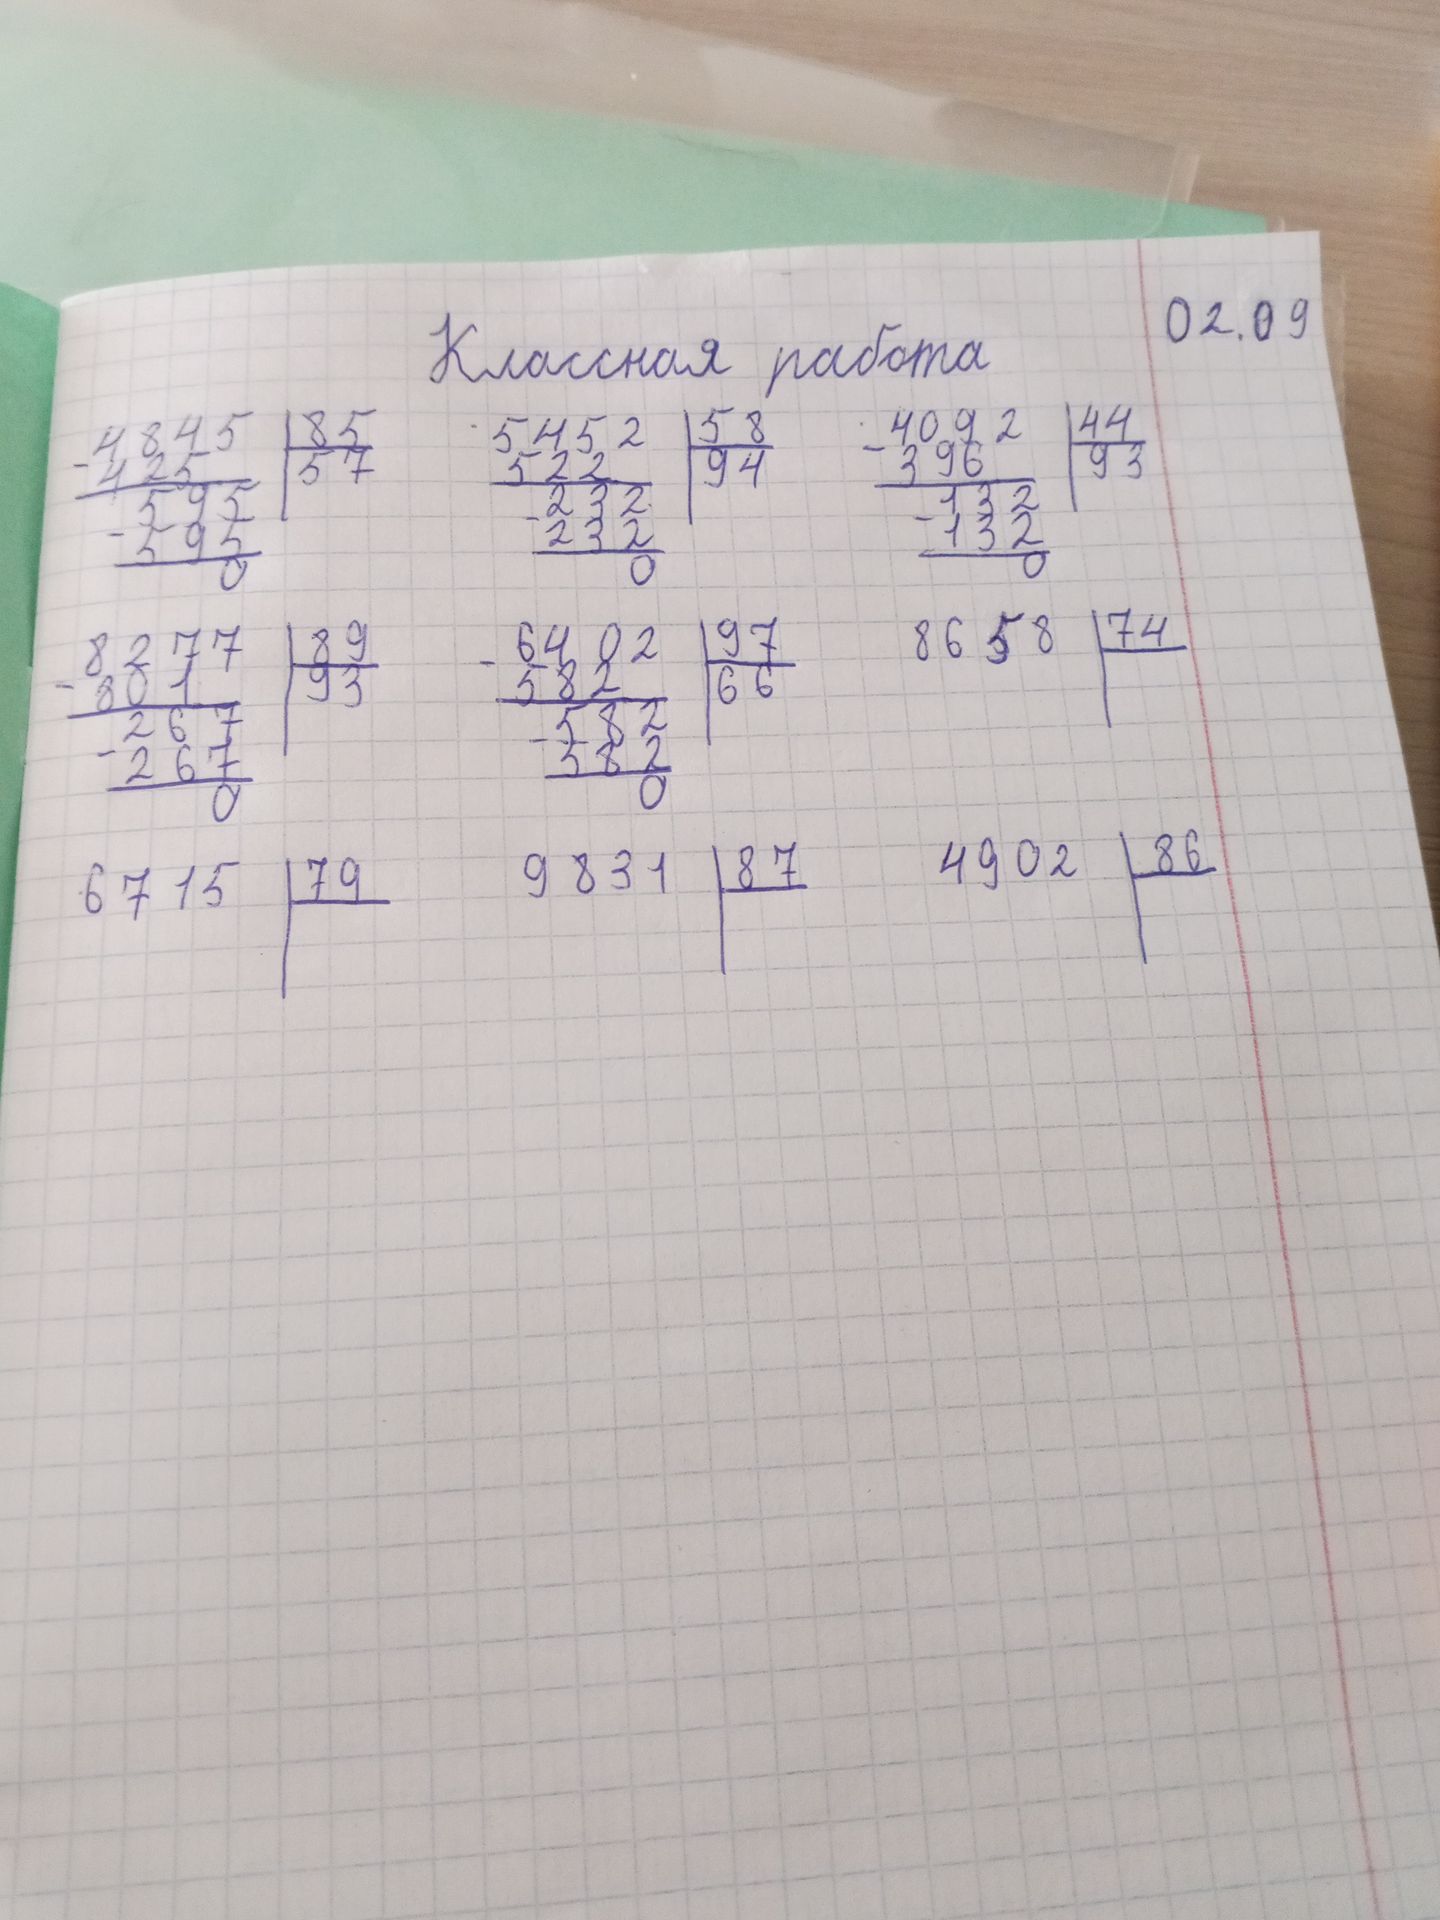 02.09
Классная работа
-4845 |85
425 57
595
-595
0
5452 |58
522 94
-232
232
0
-4092 |44
396 93
-132
132
0
-8277 |89
801 93
-267
267
0
-6402 |97
582 66
-582
582
0
8658 |74
6715 |79
9831 |87
4902 |86